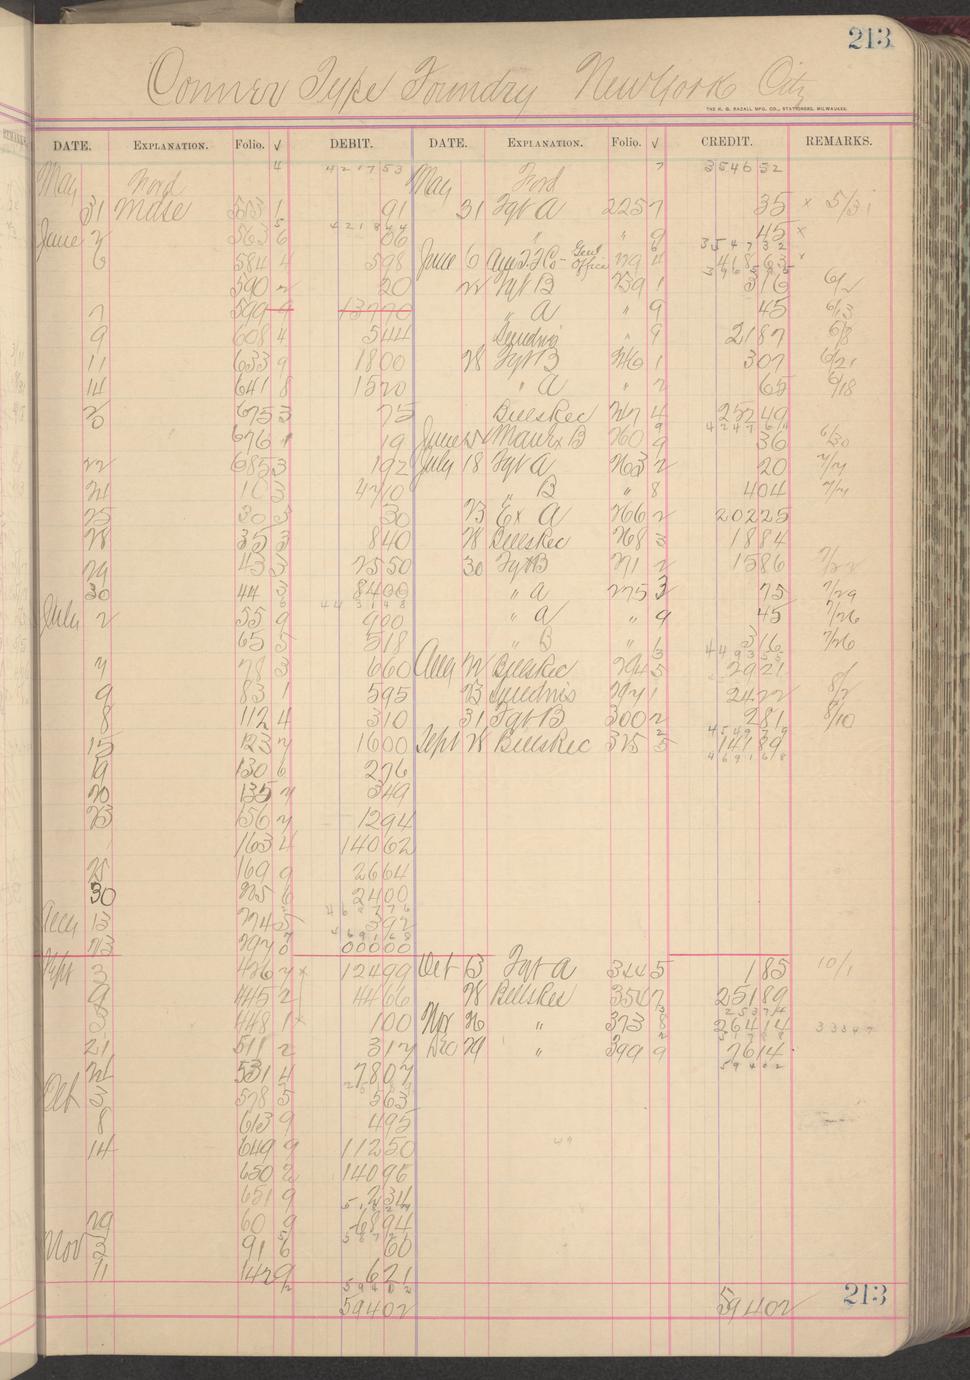 213
Conner Type Foundry New York City
THE H. G. RAZALL MFG. CO., STATIONERS, MILWAUKEE.
DATE. EXPLANATION. Folio. √ DEBIT. DATE. EXPLANATION. Folio. √ CREDIT. REMARKS.
May Ford 4 421753 May Ford 7 354652
31 Mdse 513 1 91 31 Fgt A 225 7 35 x 5/31
June 2 563 6 56 " " 9 45 x
6 584 4 598 June 6 Genl Office 4 41863 x
590 2 20 22 Fgt B 239 1 316 6/2
7 599 9 13770 " A " 9 45 6/13
9 608 4 544 Sundries " 9 2187 6/8
11 633 9 1800 28 Fgt B 246 1 307 6/21
14 641 8 1520 " A " 2 65 6/18
675 3 75 Billsrec 247 4 25249
676 1 19 June B 260 9 36 6/30
22 685 3 192 July 18 Fgt A 263 2 20 7/7
24 10 3 4210 " B " 8 404 7/7
25 30 5 30 23 Ex A 266 2 20225
28 35 3 840 28 Billsrec 268 3 1884
29 43 3 2550 30 Fgt B 271 2 1586 7/22
30 44 3 8400 " a 275 3 75 7/29
443148
July 2 55 9 900 " a " 9 45 7/26
65 5 518 " B " 1 316 7/26
7 78 3 660 Aug 22 Billsrec 294 5 2921
9 83 1 595 23 Sundries 297 1 2422 8/2
8 112 4 310 31 Fgt B 300 2 281 8/10
15 123 7 1600 Sept 28 Billsrec 325 5 14189
469168
19 130 6 276
20 135 7 349
23 156 7 1294
163 4 14062
25 169 9 2664
30 225 6 2400
Aug 13 274 5 392
469168
23 297 0 00000
Sept 3 426 7 x 12499 Oct 13 Fgt A 344 5 185 10/1
9 445 2 4466 28 Billsrec 354 7 25189
25374
448 1 x 100 Nov 26 " 373 8 26414 33347
21 511 2 317 Dec 29 " 399 9 7614
59402
24 531 4 7807
Oct 3 578 5 563
8 613 9 495
14 649 9 11250
650 2 14096
651 9 234
29 60 9 6894
Nov 2 91 6 60
11 142 9 621
59402
59402 59402
213